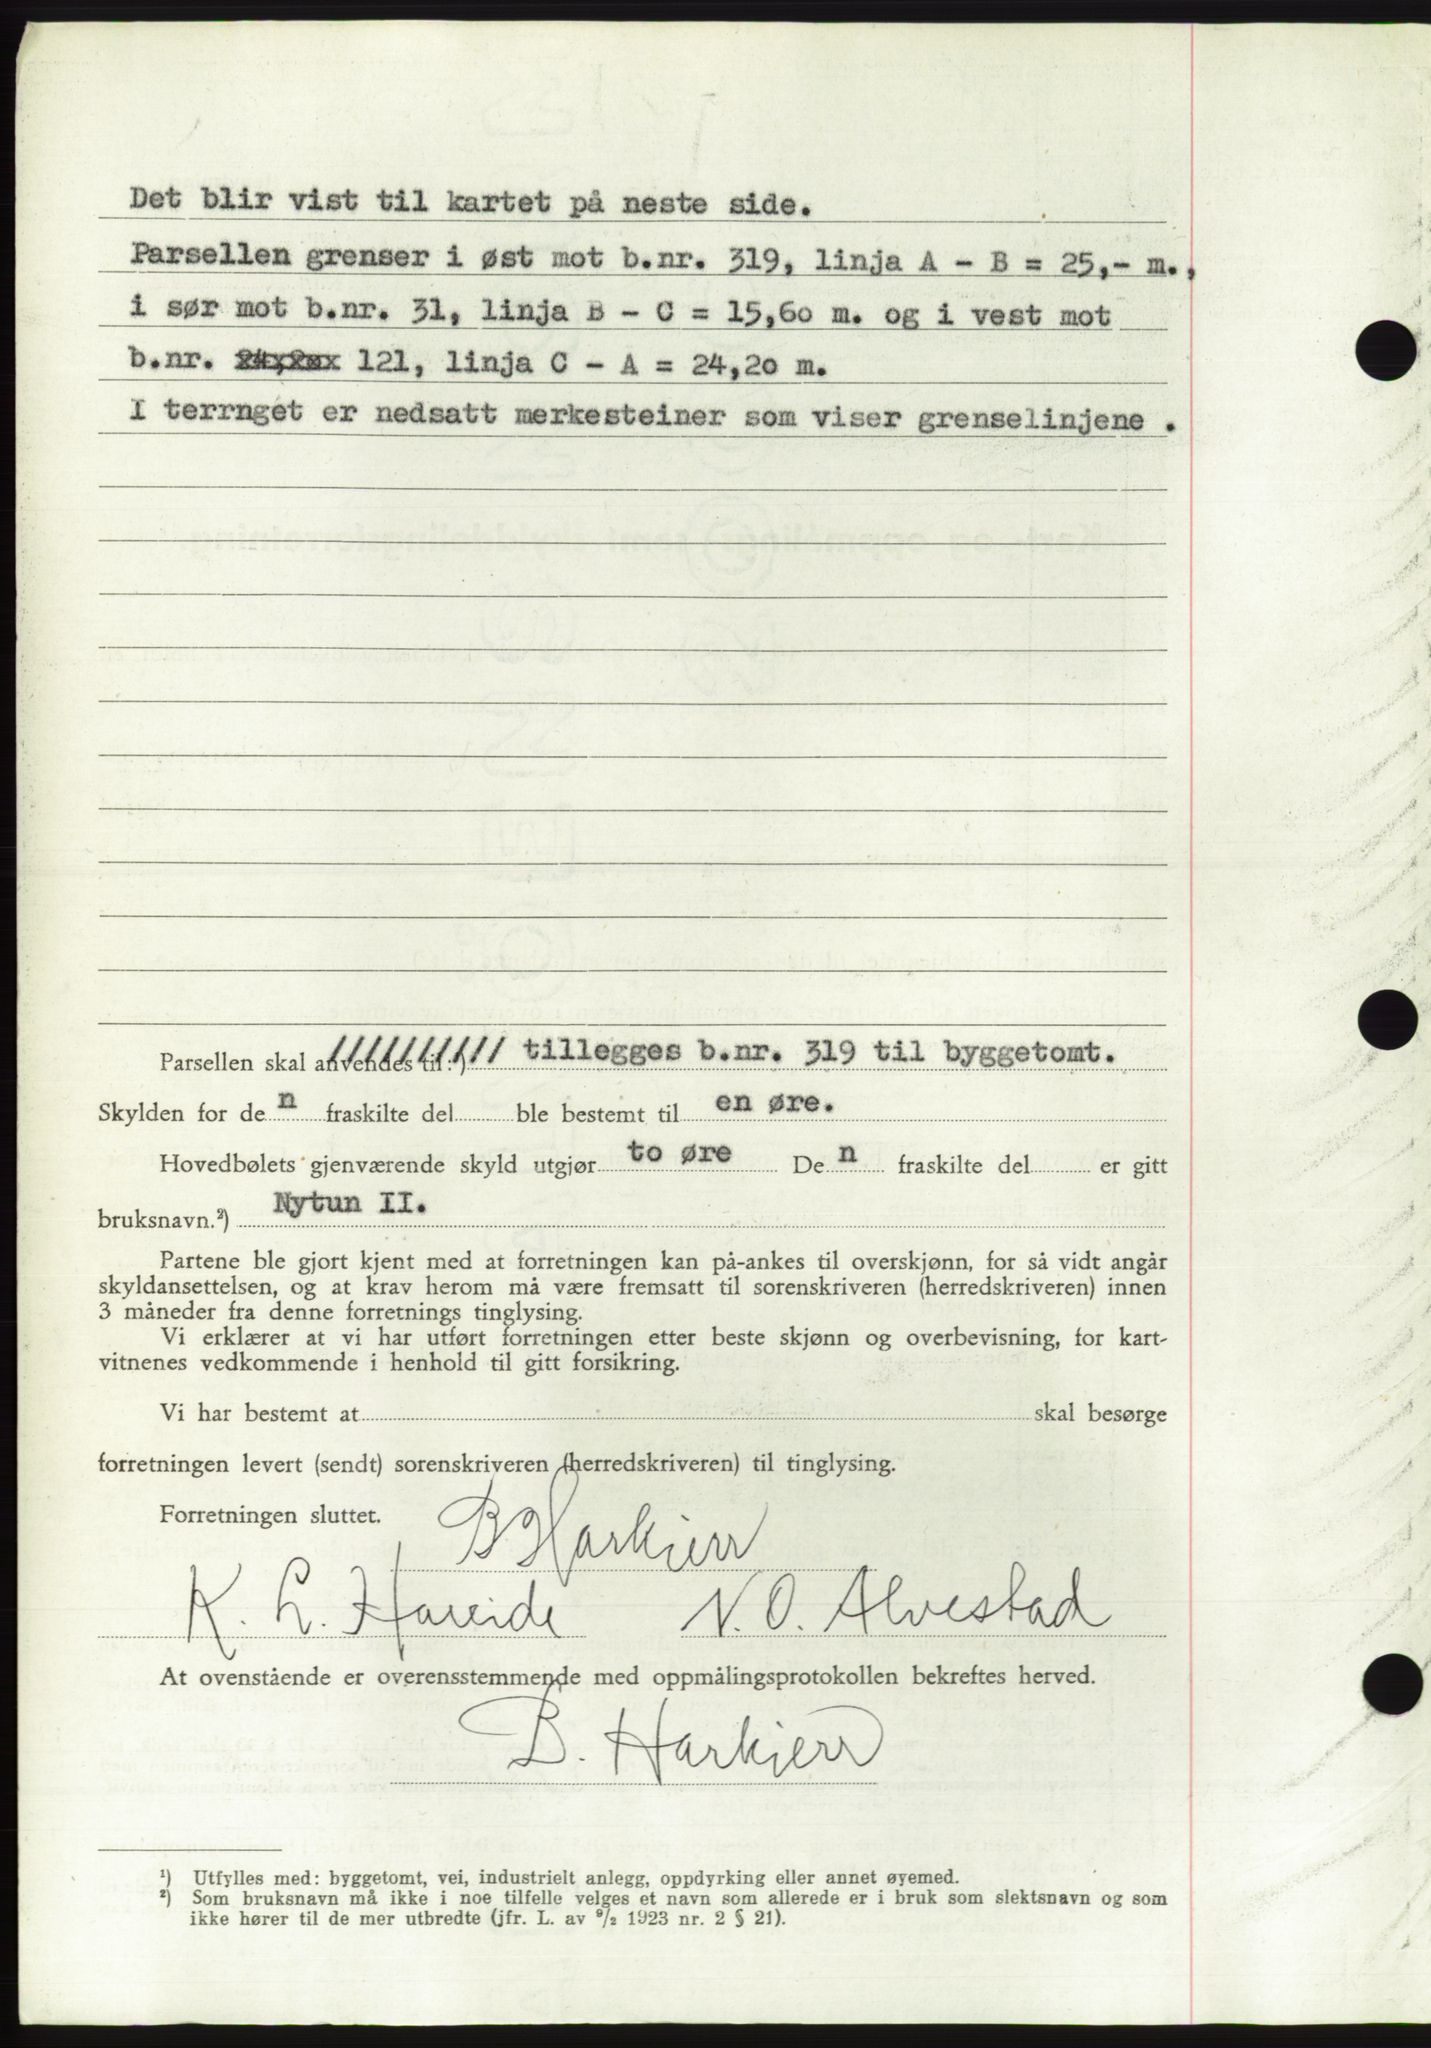 Det blir vist til kartet på neste side.
Parsellen grenser i øst mot b.nr. 319, linja A - B = 25,- m.,
i sør mot b.nr. 31, linja B - C = 15,60 m. og i vest mot
b.nr. 121, linja C - A = 24,20 m.
I terrnget er nedsatt merkesteiner som viser grenselinjene .
Parsellen skal anvendes til:¹) ////////// tillegges b.nr. 319 til byggetomt.
Skylden for den fraskilte del ble bestemt til en øre.
Hovedbølets gjenværende skyld utgjør to øre Den fraskilte del er gitt
bruksnavn.²) Nytun II.
Partene ble gjort kjent med at forretningen kan på-ankes til overskjønn, for så vidt angår
skyldansettelsen, og at krav herom må være fremsatt til sorenskriveren (herredskriveren) innen
3 måneder fra denne forretnings tinglysing.
Vi erklærer at vi har utført forretningen etter beste skjønn og overbevisning, for kart-
vitnenes vedkommende i henhold til gitt forsikring.
Vi har bestemt at skal besørge
forretningen levert (sendt) sorenskriveren (herredskriveren) til tinglysing.
Forretningen sluttet.
B Harkjerr
K. L. Hareide N. O. Alvestad
At ovenstående er overensstemmende med oppmålingsprotokollen bekreftes herved.
B. Harkjerr
¹) Utfylles med: byggetomt, vei, industrielt anlegg, oppdyrking eller annet øyemed.
²) Som bruksnavn må ikke i noe tilfelle velges et navn som allerede er i bruk som slektsnavn og som
ikke hører til de mer utbredte (jfr. L. av 9/2 1923 nr. 2 § 21).